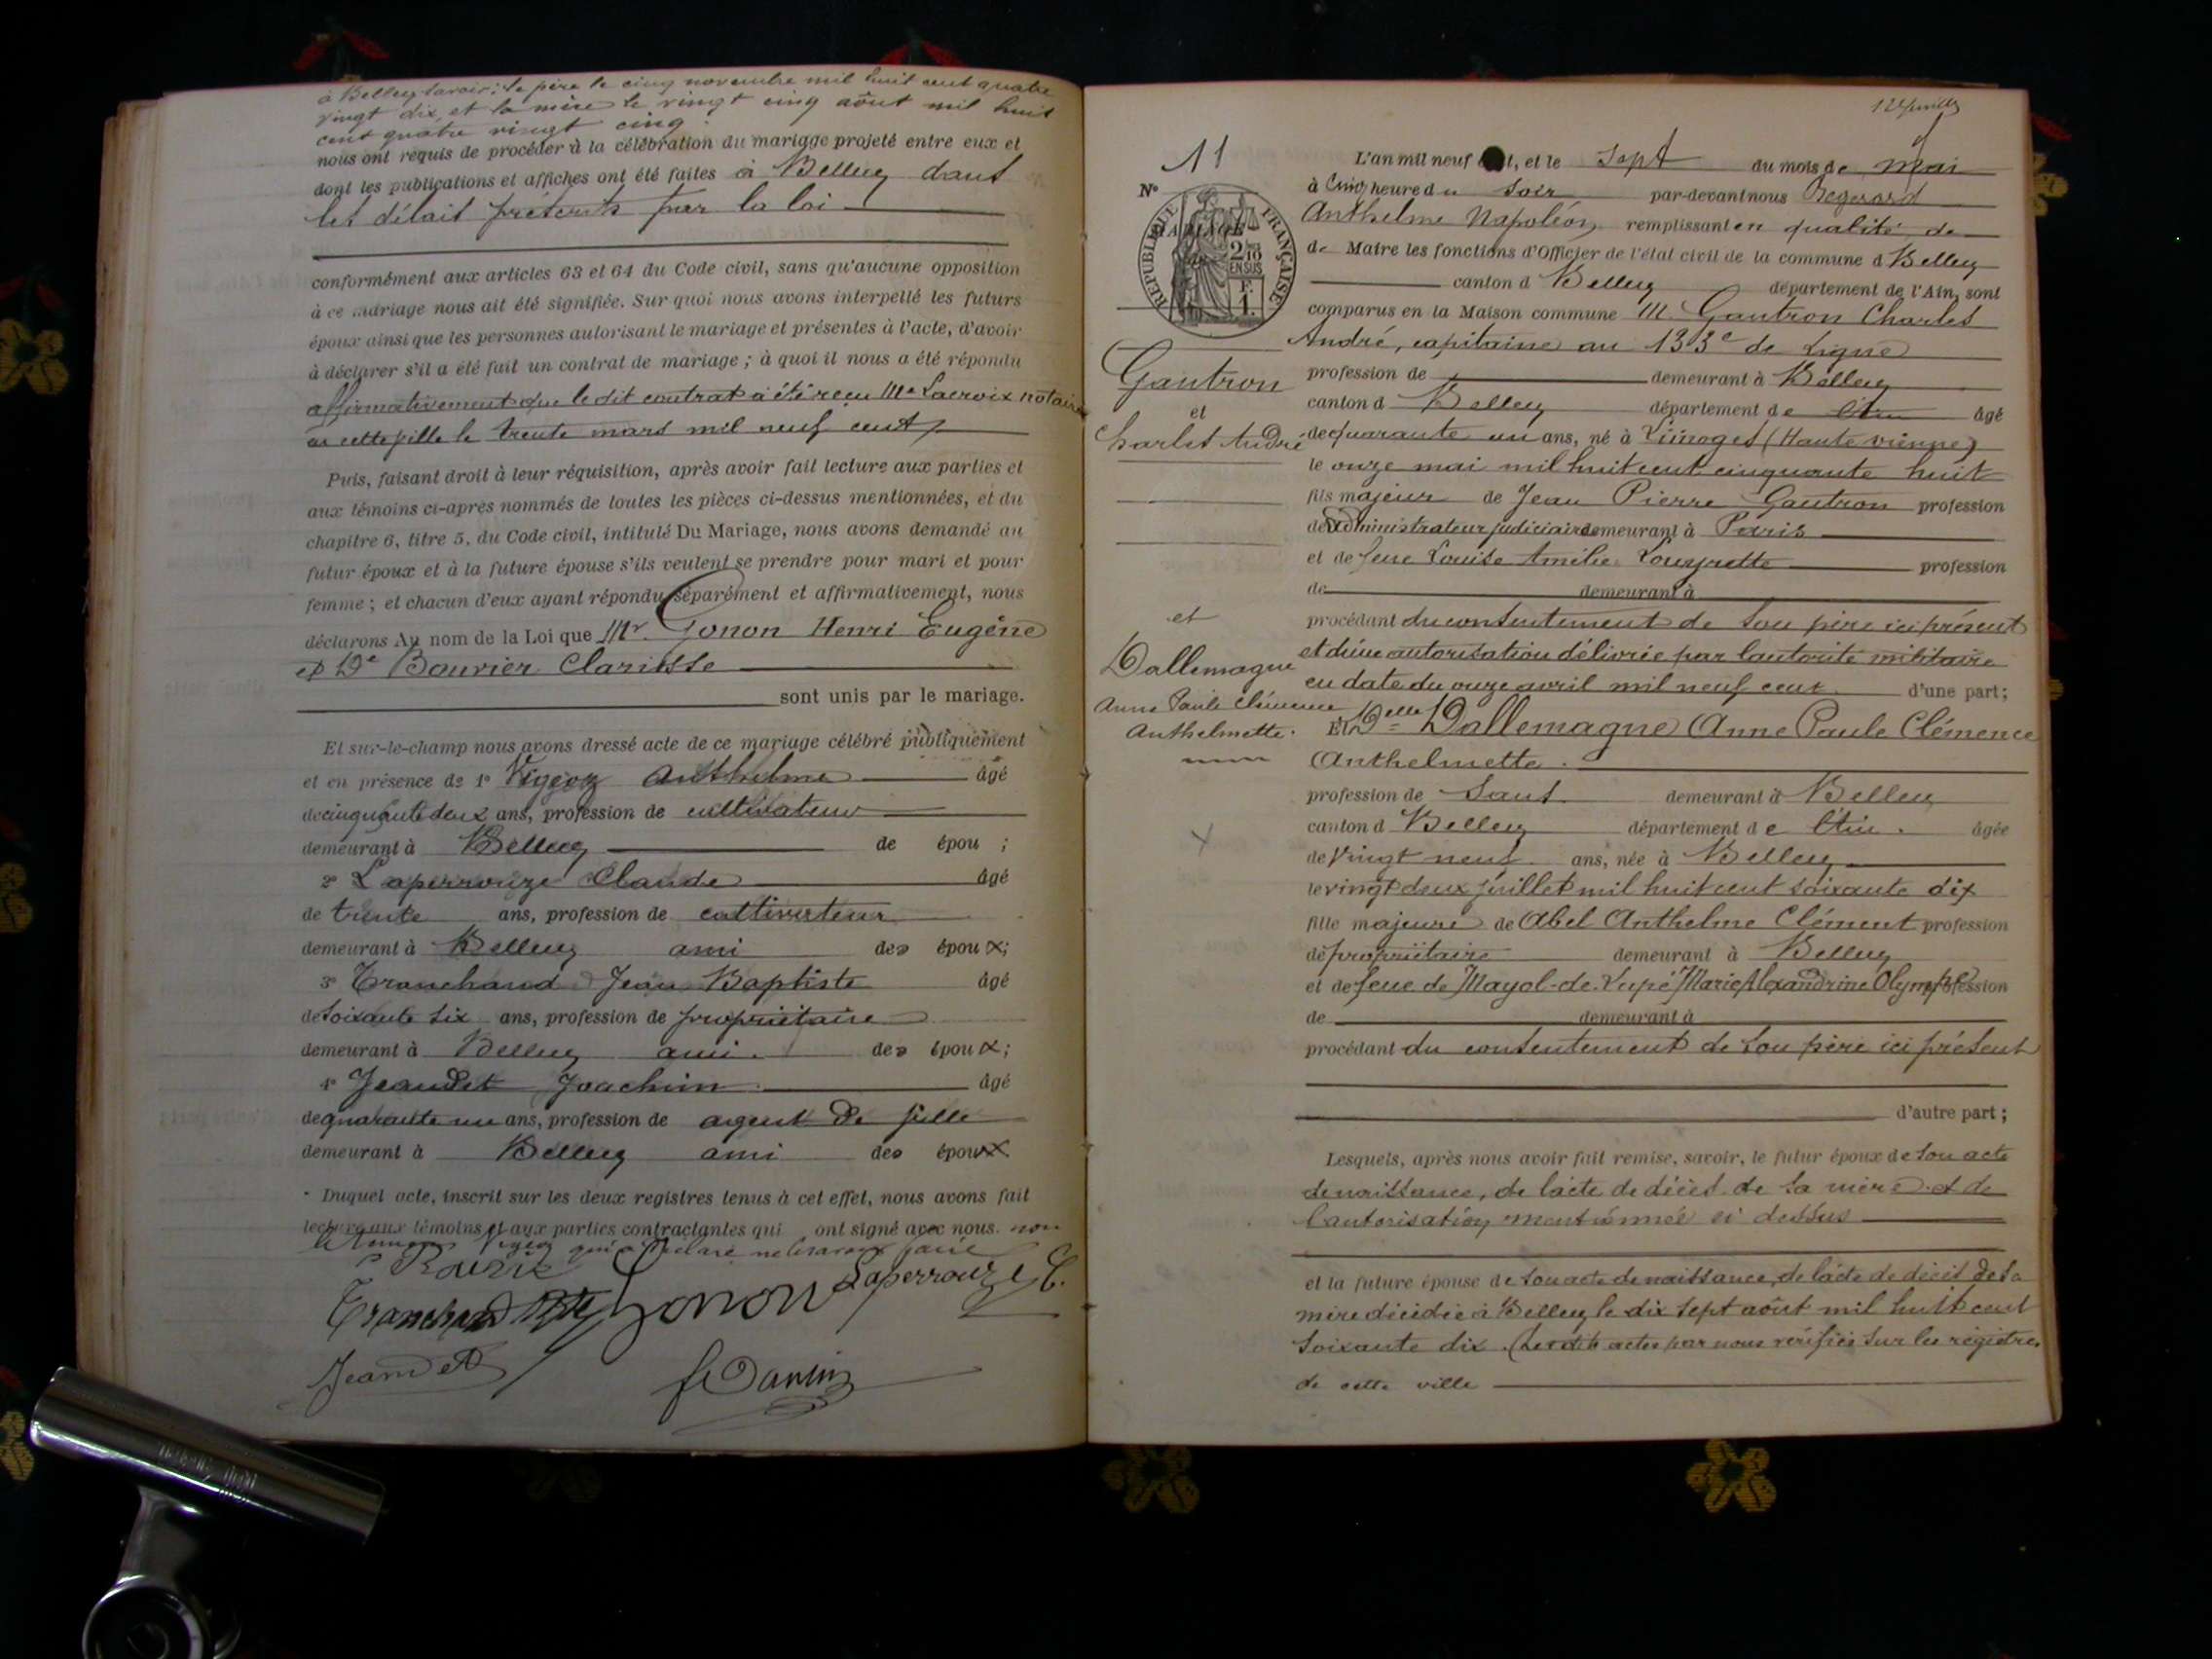 à Belley savoir: le père le cinq novembre mil huit cent quatre
vingt dix, et la mère le vingt cinq aôut mil huit
cent quatre vingt cinq
nous ont requis de procéder à la célébration du mariage projeté entre eux et
dont les publications et affiches ont été faites à Belley dans
les délais prescrits par la loi
conformément aux articles 63 et 64 du Code civil, sans qu'aucune opposition
à ce mariage nous ait été signifiée. Sur quoi nous avons interpellé les futurs
époux ainsi que les personnes autorisant le mariage et présentes à l'acte, d'avoir
à déclarer s'il a été fait un contrat de mariage ; à quoi il nous a été répondu
affirmativement que le dit contrat a été reçu Me Lacroix notaire
en cette ville le trente mars mil neuf cent
Puis, faisant droit à leur réquisition, après avoir fait lecture aux parties et
aux témoins ci-après nommés de toutes les pièces ci-dessus mentionnées, et du
chapitre 6, titre 5, du Code civil, intitulé Du Mariage, nous avons demandé au
futur époux et à la future épouse s'ils veulent se prendre pour mari et pour
femme ; et chacun d'eux ayant répondu séparément et affirmativement, nous
déclarons Au nom de la Loi que Mr. Gonon Henri Eugène
et De Bouvier Clarisse
sont unis par le mariage.
Et sur-le-champ nous avons dressé acte de ce mariage célébré publiquement
et en présence de 1° Anthelme âgé
de cinquante deux ans, profession de cultivateur
demeurant à Belley de épou ;
2° Laperrouze Claude âgé
de trente ans, profession de cultivateur
demeurant à Belley ami des époux;
3° Tranchand Jean Baptiste âgé
de soixante six ans, profession de propriétaire
demeurant à Belley ami des époux;
4° Jeandet Joachim âgé
de quarante un ans, profession de agent de ville
demeurant à Belley ami des époux
Duquel acte, inscrit sur les deux registres tenus à cet effet, nous avons fait
lecture aux témoins et aux parties contractantes qui ont signé avec nous. non
le témoin qui a déclaré ne le savoir faire
Laperrouze C.
Tranchand Bte Gonon
Jeandet
11
N°
RÉPUBLIQUE FRANÇAISE
2/10 EN SUS
F. 1.
Gautron
et
Charles André
et
Dallemagne
Anne Paule Clémence
Anthelmette.
L'an mil neuf cent, et le sept du mois de mai
à cinq heure du soir par-devant nous
Anthelme Napoléon remplissant en qualité de
de Maire les fonctions d'Officier de l'état civil de la commune d Belley
canton d Belley département de l'Ain, sont
comparus en la Maison commune M. Gautron Charles
André, capitaine au 133e de Ligne
profession de demeurant à Belley
canton d Belley département de l'Ain âgé
de quarante un ans, né à Limoges (Haute vienne)
le onze mai mil huit cent cinquante huit
fils majeur de Jean Pierre Gautron profession
de administrateur judiciaire demeurant à Paris
et de feue Louise Amélie profession
de demeurant à
procédant du consentement de son père ici présent
et d'une autorisation délivrée par l'autorité militaire
en date du onze avril mil neuf cent d'une part;
Et Delle Dallemagne Anne Paule Clémence
Anthelmette.
profession de Sans demeurant à Belley
canton d Belley département de l'Ain. âgée
de vingt neuf ans, née à Belley
le vingt deux juillet mil huit cent soixante dix
fille majeure de Abel Anthelme Clément profession
de propriétaire demeurant à Belley
et de feue de Mayol-de-Lupé Marie Alexandrine Olympe profession
de demeurant à
procédant du consentement de son père ici présent
d'autre part ;
Lesquels, après nous avoir fait remise, savoir, le futur époux de son acte
de naissance, de l'acte de décès de sa mère et de
l'autorisation mentionnée ci dessus
et la future épouse de son acte de naissance, de l'acte de décès de sa
mère décédée à Belley le dix sept aôut mil huit cent
soixante dix. Lesdits actes par nous vérifiés sur les registres
de cette ville